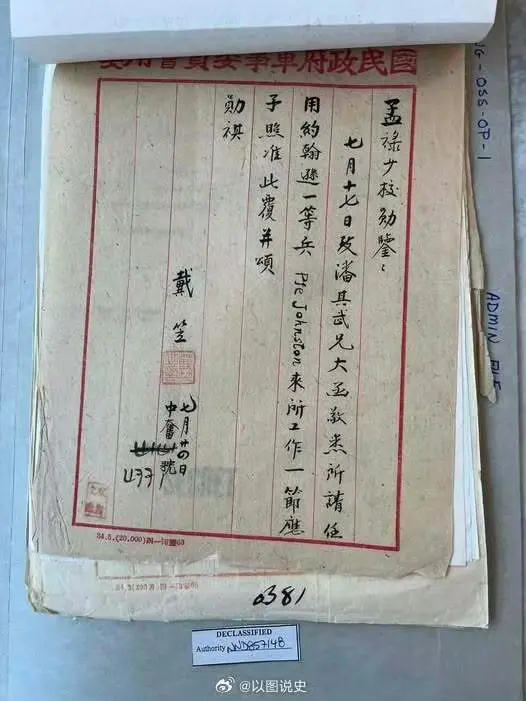 國民政府軍事委員會用箋
孟祿少校勛鑒：
七月十七日致潘其武兄大函敬悉所請任
用約翰遜一等兵 Pfc Johnston 來所工作一節應
予照准此覆并頌
勛祺
戴笠
七月廿四日
中奮號
433
34.5.(20,000)
NG-OSS-OP-1
ADMIN FILE
0381
DECLASSIFIED
Authority NND857148
@以图说史